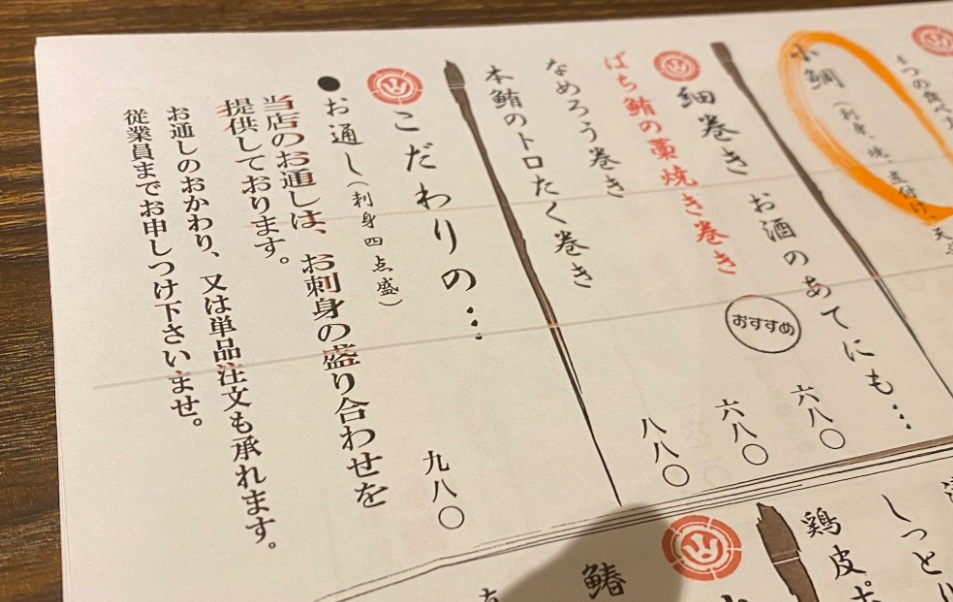 小鯛
細巻き お酒のあてにも…
ばち鮪の藁焼き巻き おすすめ 六八〇
なめろう巻き 六八〇
本鮪のトロたく巻き 八八〇
こだわりの…
●お通し（刺身四点盛） 九八〇
当店のお通しは、お刺身の盛り合わせを
提供しております。
お通しのおかわり、又は単品注文も承れます。
従業員までお申しつけ下さいませ。
しっとり
鶏皮ポ
鰆